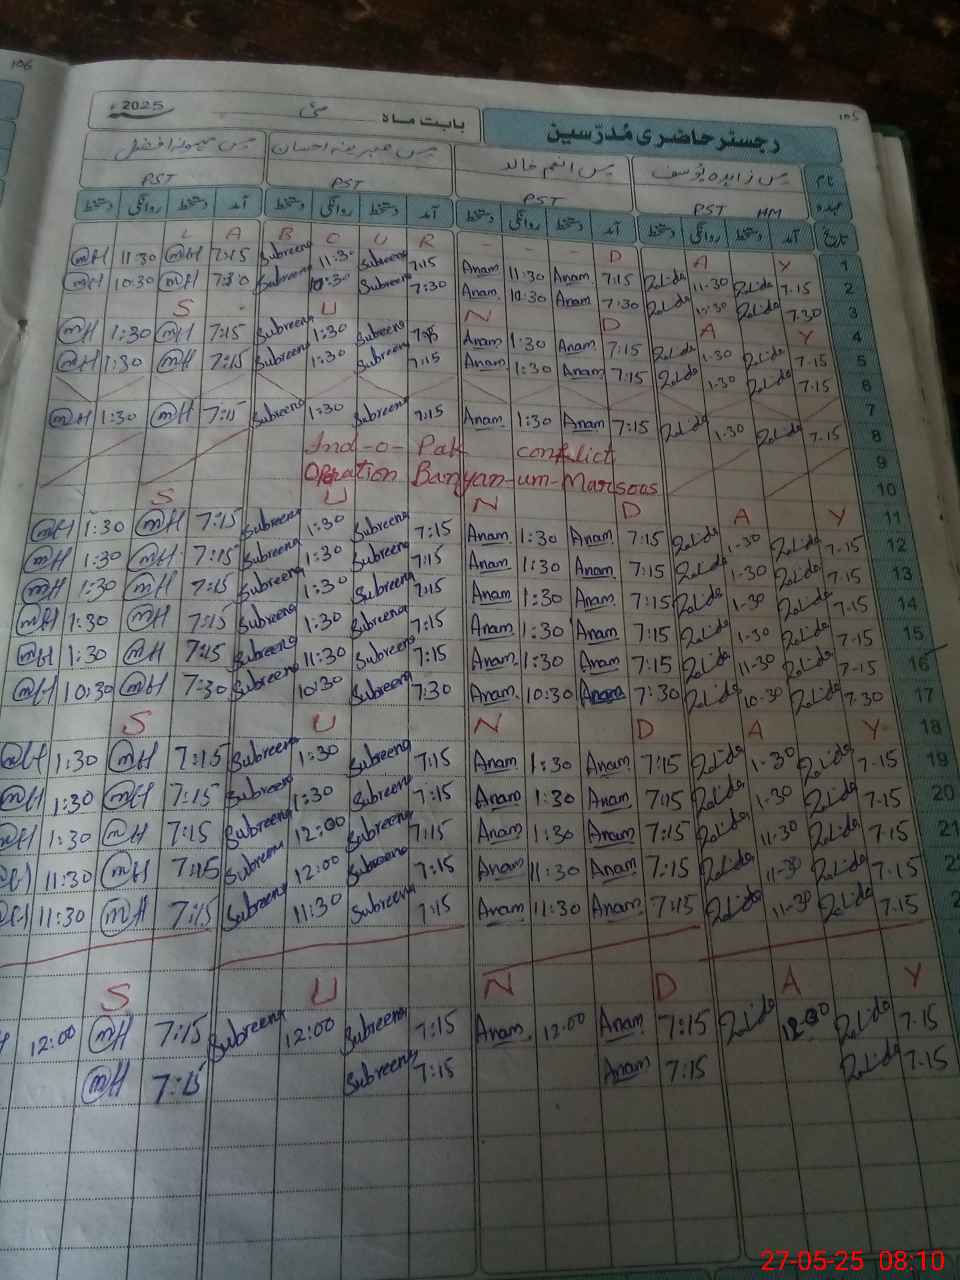 106
105
رجسٹر حاضری مُدرّسین بابت ماہ مئی 2025ء
نام مس زاہدہ یوسف مس انعم خالد مس صبرینہ احسان مس میمونہ افضل
عہدہ PST HM PST PST PST
تاریخ آمد دستخط روانگی دستخط آمد دستخط روانگی دستخط آمد دستخط روانگی دستخط آمد دستخط روانگی دستخط
L A B O U R - - - D A Y 1
mH 11:30 mH 7:15 Subreena 11:30 Subreena 7:15 Anam 11:30 Anam 7:15 Zahida 11-30 Zahida 7-15 2
mH 10:30 mH 7:30 Subreena 10:30 Subreena 7:30 Anam 10:30 Anam 7:30 Zahida 10-30 Zahida 7-30 3
S U N D A Y 4
mH 1:30 mH 7:15 Subreena 1:30 Subreena 7:15 Anam 1:30 Anam 7:15 Zahida 1-30 Zahida 7-15 5
mH 1:30 mH 7:15 Subreena 1:30 Subreena 7:15 Anam 1:30 Anam 7:15 Zahida 1-30 Zahida 7-15 6
7
mH 1:30 mH 7:15 Subreena 1:30 Subreena 7:15 Anam 1:30 Anam 7:15 Zahida 1-30 Zahida 7-15 8
Ind-o-Pak conflict 9
Operation Banyan-um-Marsoos 10
S U N D A Y 11
mH 1:30 mH 7:15 Subreena 1:30 Subreena 7:15 Anam 1:30 Anam 7:15 Zahida 1-30 Zahida 7-15 12
mH 1:30 mH 7:15 Subreena 1:30 Subreena 7:15 Anam 1:30 Anam 7:15 Zahida 1-30 Zahida 7-15 13
mH 1:30 mH 7:15 Subreena 1:30 Subreena 7:15 Anam 1:30 Anam 7:15 Zahida 1-30 Zahida 7-15 14
mH 1:30 mH 7:15 Subreena 1:30 Subreena 7:15 Anam 1:30 Anam 7:15 Zahida 1-30 Zahida 7-15 15
mH 1:30 mH 7:15 Subreena 11:30 Subreena 7:15 Anam 1:30 Anam 7:15 Zahida 11-30 Zahida 7-15 16
mH 10:30 mH 7:30 Subreena 10:30 Subreena 7:30 Anam 10:30 Anam 7:30 Zahida 10-30 Zahida 7-30 17
S U N D A Y 18
mH 1:30 mH 7:15 Subreena 1:30 Subreena 7:15 Anam 1:30 Anam 7:15 Zahida 1-30 Zahida 7-15 19
mH 1:30 mH 7:15 Subreena 1:30 Subreena 7:15 Anam 1:30 Anam 7:15 Zahida 1-30 Zahida 7-15 20
mH 1:30 mH 7:15 Subreena 12:00 Subreena 7:15 Anam 1:30 Anam 7:15 Zahida 11-30 Zahida 7-15 21
11:30 mH 7:15 Subreena 12:00 Subreena 7:15 Anam 11:30 Anam 7:15 Zahida 11-30 Zahida 7-15
11:30 mH 7:15 Subreena 11:30 Subreena 7:15 Anam 11:30 Anam 7:15 Zahida 11-30 Zahida 7-15
S U N D A Y
12:00 mH 7:15 Subreena 12:00 Subreena 7:15 Anam 12:00 Anam 7:15 Zahida 12-00 Zahida 7-15
mH 7:15 Subreena 7:15 Anam 7:15 Zahida 7-15
27-05-25 08:10